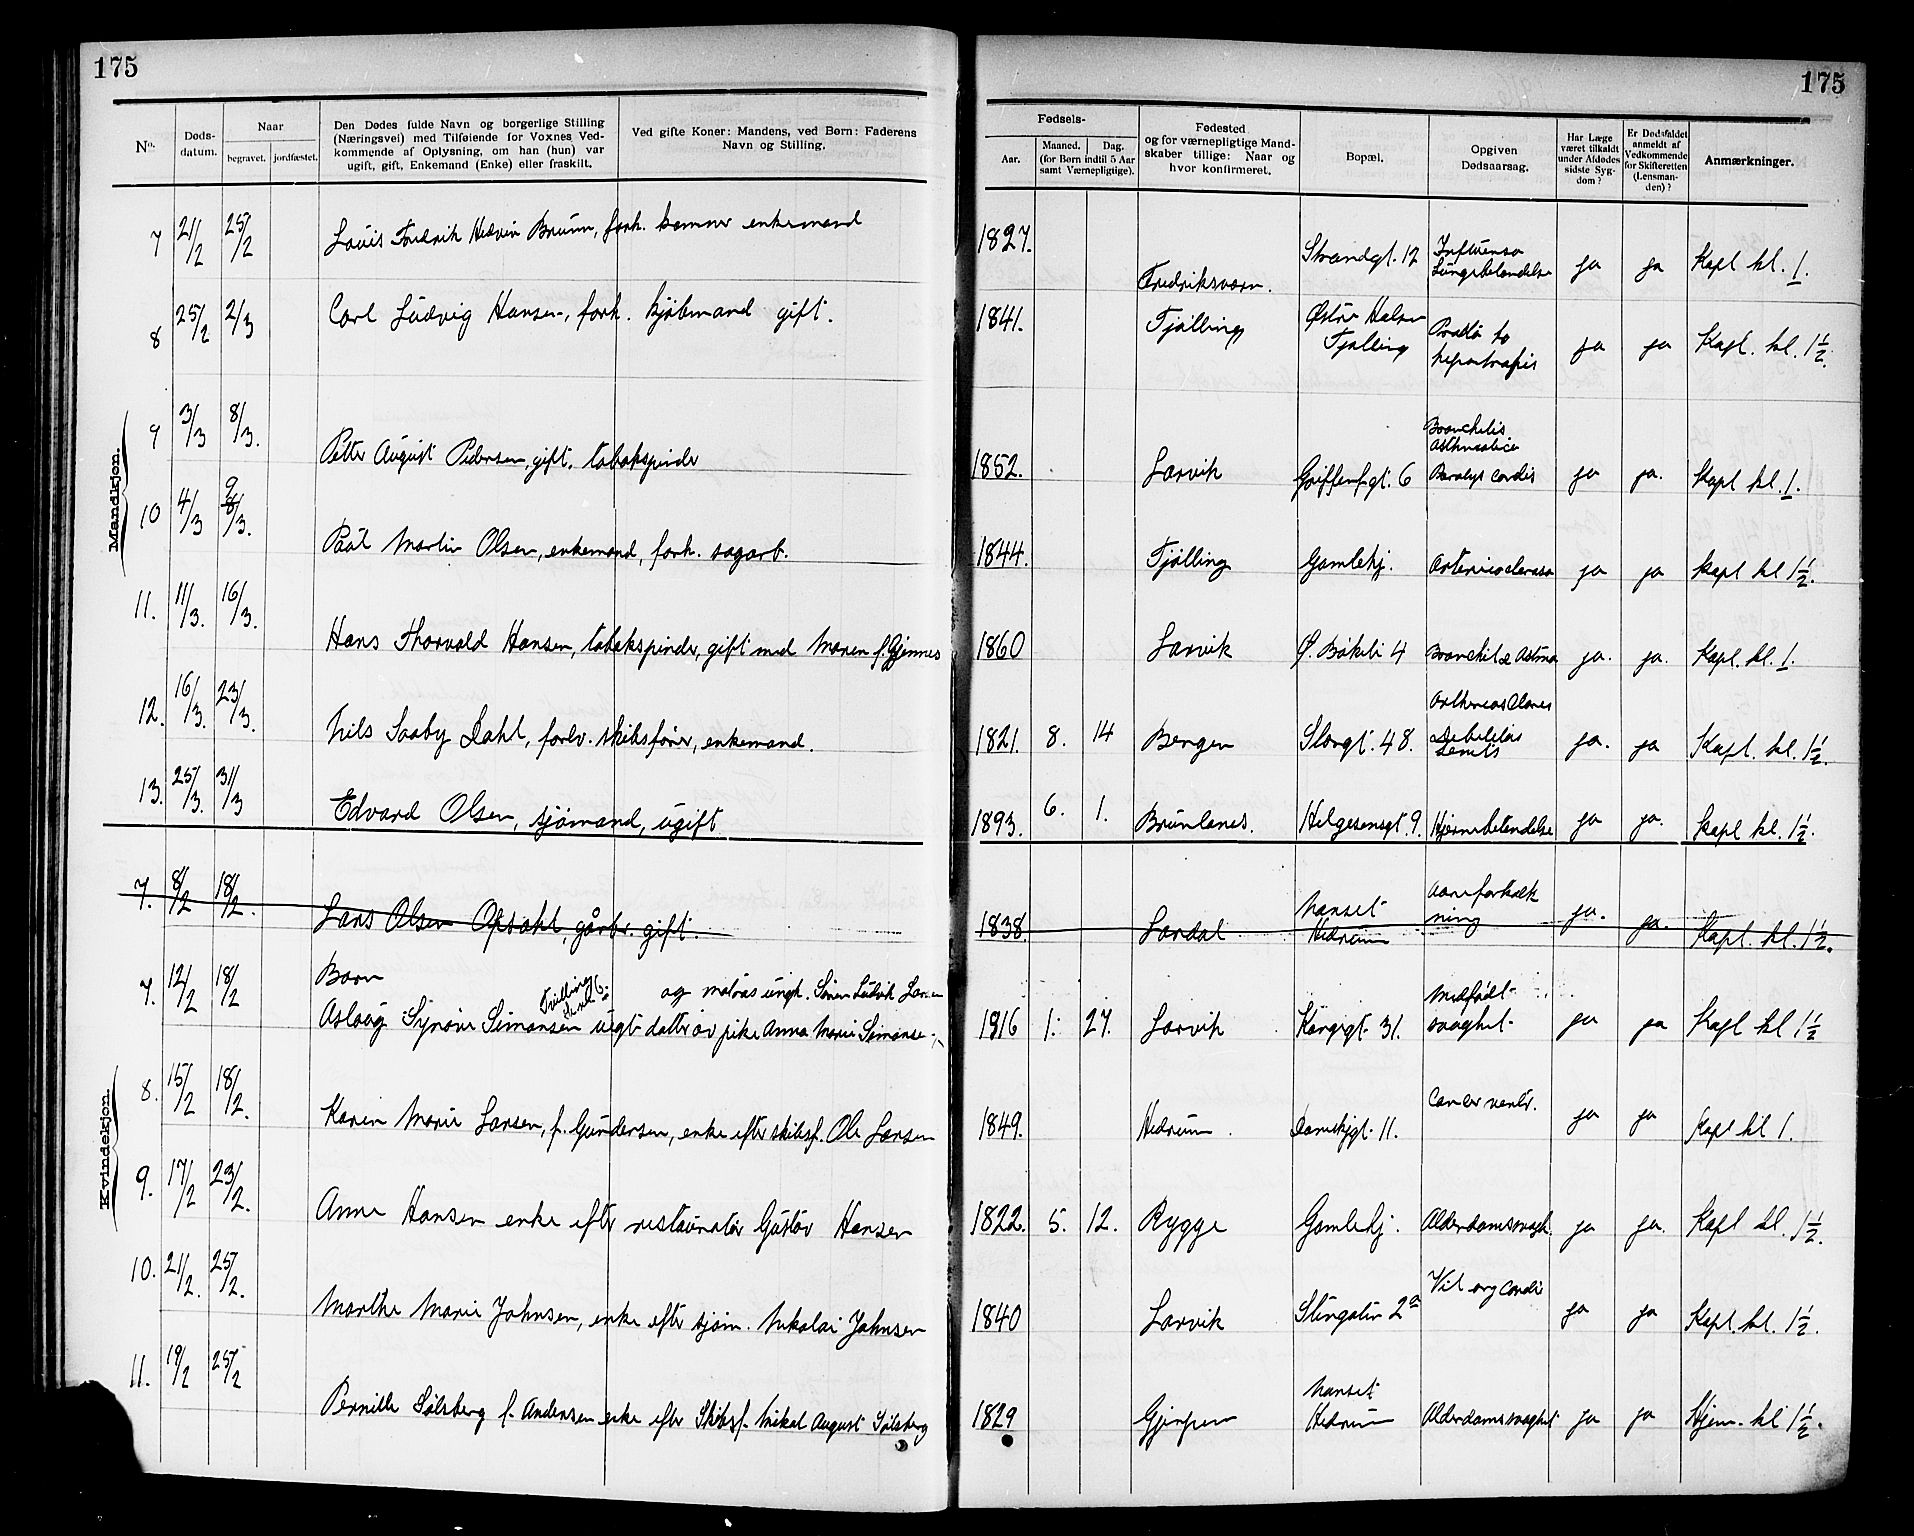 175
175
No.
Døds-
datum.
Naar
begravet.
jordfæstet.
Den Dødes fulde Navn og borgerlige Stilling
(Næringsvei) med Tilføiende for Voxnes Ved-
kommende af Oplysning, om han (hun) var
ugift, gift, Enkemand (Enke) eller fraskilt.
Ved gifte Koner: Mandens, ved Børn: Faderens
Navn og Stilling.
Fødsels-
Aar.
Maaned.
Dag.
(for Børn indtil 5 Aar
samt Værnepligtige).
Fødested
og for værnepligtige Mand-
skaber tillige: Naar og
hvor konfirmeret.
Bopæl.
Opgiven
Dødsaarsag.
Har Læge
været tilkaldt
under Afdødes
sidste Syg-
dom?
Er Dødsfaldet
anmeldt af
Vedkommende
for Skifteretten
(Lensman-
den)?
Anmærkninger.
Mandkjøn.
7 21/2 25/2 Louis Fredrik Brünn, forh. enkemand 1827. Fredriksværn. Strandgt. 12 Influensa Lungebetendelse ja ja Kapl kl. 1.
8 25/2 2/3 Carl Ludvig Hansen, forh. kjøbmand gift. 1841. Tjølling Østre Halsen Tjølling ja ja Kapl. kl. 1½.
9 3/3 8/3. Petter August Pedersen, gift. tobakspinder 1852. Larvik Griffenf.gt. 6 Bronchitis asthmatica cordis ja ja. Kapl kl. 1.
10 4/3 9/3. Paul Martin Olsen, enkemand, forh. sagarb. 1844. Tjølling Gamlehj. Arteriosclerose ja ja Kapl kl 1½.
11. 11/3. 16/3. Hans Thorvald Hansen, tobakspinder, gift med Maren f. Gjønnes 1860 Larvik Ø. Bøkeli 4 Bronchit & Astma ja. ja. Kapl. kl. 1.
12. 16/3. 23/3. Nils Saaby Dahl, forhv. skibsfører, enkemand. 1821. 8. 14 Bergen Storgt. 48. Debilitas Senilis ja. ja Kapl. kl. 1½.
13. 25/3. 31/3 Edvard Olsen, sjømand, ugift 1893. 6. 1. Brunlanes. Helgesensgt. 9. Hjernebetendelse ja ja. Kapl kl. 1½.
Kvindekjøn.
7. 8/2 18/2. Lars Olsen Opdahl, gårbr. gift. 1838. Lardal Nanset Hedrum aareforkalkning ja. ja. Kapl. kl. 1½.
7. 12/2 18/2 Barn
Tvilling
og matros ungk. Søren Ludvik Larsen
Aslaug Synøve Simonsen uegt. datter av pike Anna Marie Simonsen 1916 1. 27. Larvik Kongegt. 31. Medfødt svaghet ja ja Kapl kl 1½
8. 15/2 18/2. Karen Marie Larsen, f. Gundersen, enke efter skibsf. Ole Larsen 1849. Hedrum. Damskjgt. 11. Cancer ventr. ja ja Kapl kl 1.
9. 17/2 23/2. Anne Hansen enke efter restauratør Gustav Hansen 1822. 5. 12. Rygge Gamlehj. Alderdomssvagh. ja ja. Kapl kl. 1½.
10. 21/2. 25/2. Marthe Marie Johnsen, enke efter sjøm. Nikolai Johnsen 1840 Larvik Stengaten 2a Vit org cordis ja ja Kapl. kl. 1½.
11. 19/2 25/2 Pernille Sølsberg f. Andersen enke efter Skibsf. Mikal August Sølsberg 1829 Gjerpen Nanset Hedrum Alderdomssvaghet ja ja Hjem. kl 1½.